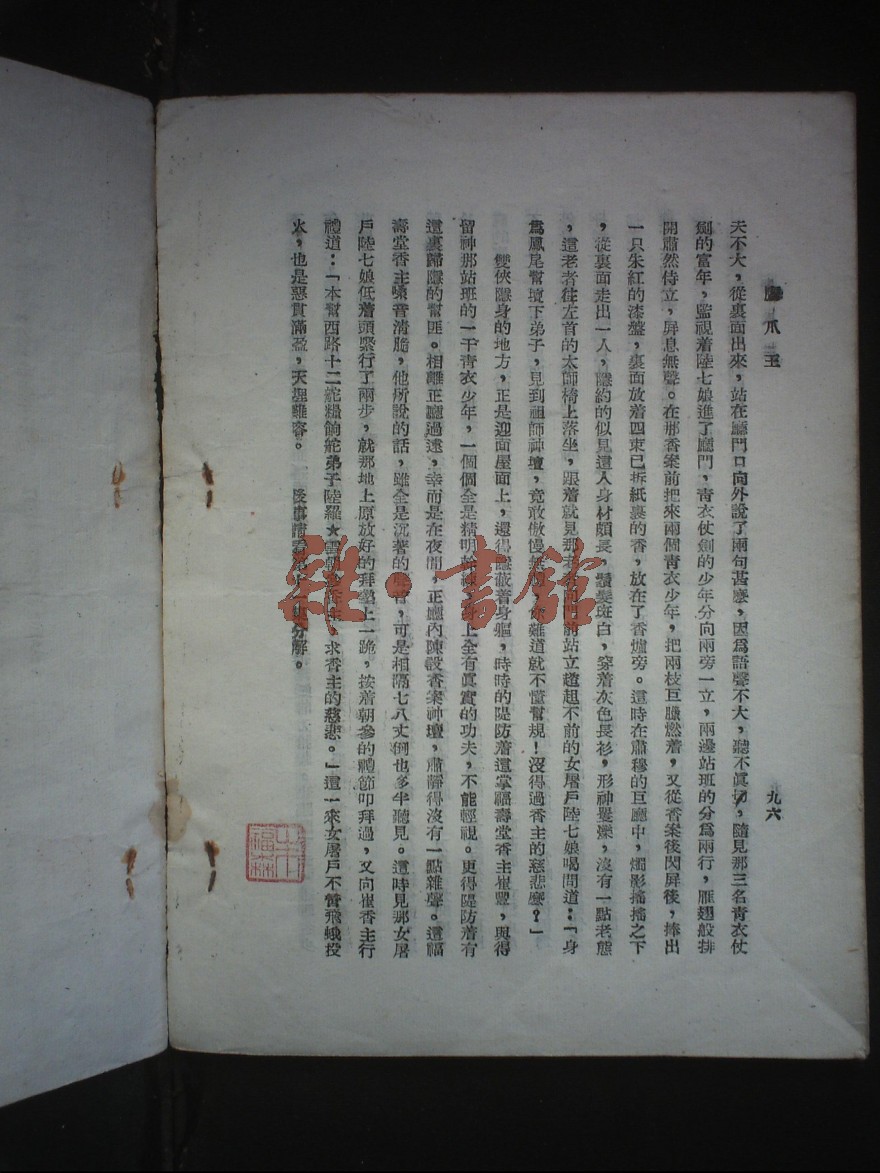 鷹爪王
九六
夫不大，從裏面出來，站在廳門口向外說了兩句甚麼，因爲語聲不大，聽不眞切，隨見那三名靑衣仗
劍的富年，監視着陸七娘進了廳門，靑衣仗劍的少年分向兩旁一立，兩邊站班的分爲兩行，雁翅般排
開肅然侍立，屏息無聲。在那香案前把來兩個靑衣少年，把兩枝巨臘燃着，又從香案後閃屏後，捧出
一只朱紅的漆盤，裏面放着四束已拆紙裹的香，放在了香爐旁。這時在肅穆的巨廳中，燭影搖搖之下
，從裏面走出一人，隱約的似見這人身材頗長，鬚髮斑白，穿着灰色長衫，形神矍爍，沒有一點老態
，這老者往左首的太師椅上落坐，跟着就見那老者向門前站立趦趄不前的女屠戶陸七娘喝問道：「身
爲鳳尾幫壇下弟子，見到祖師神壇，竟敢傲慢無，你難道就不懂幫規！沒得過香主的慈悲麼？」
雙俠隱身的地方，正是迎面屋面上，還得隱蔽着身軀，時時的隄防着這掌福壽堂香主崔豐，與得
留神那站班的一干靑衣少年，一個個全是精明幹練，身上全有眞實的功夫，不能輕視。更得隄防着有
這裏歸隱的幫匪。相離正廳過遠，幸而是在夜間，正廳內陳設香案神壇，肅靜得沒有一點雜聲。這福
壽堂香主嗓音清脆，他所說的話，雖全是沉著的聲音，可是相隔七八丈倒也多半聽見。這時見那女屠
戶陸七娘低着頭緊行了兩步，就那地上原放好的拜墊上一跪，按着朝參的禮節叩拜過，又向崔香主行
禮道：「本幫西路十二舵糧餉舵弟子陸羅★雲朝參香主，求香主的慈悲。」這一來女屠戶不管飛蛾投
火，也是惡貫滿盈，天理難容。 後事情看第十一集分解。
雜·書館